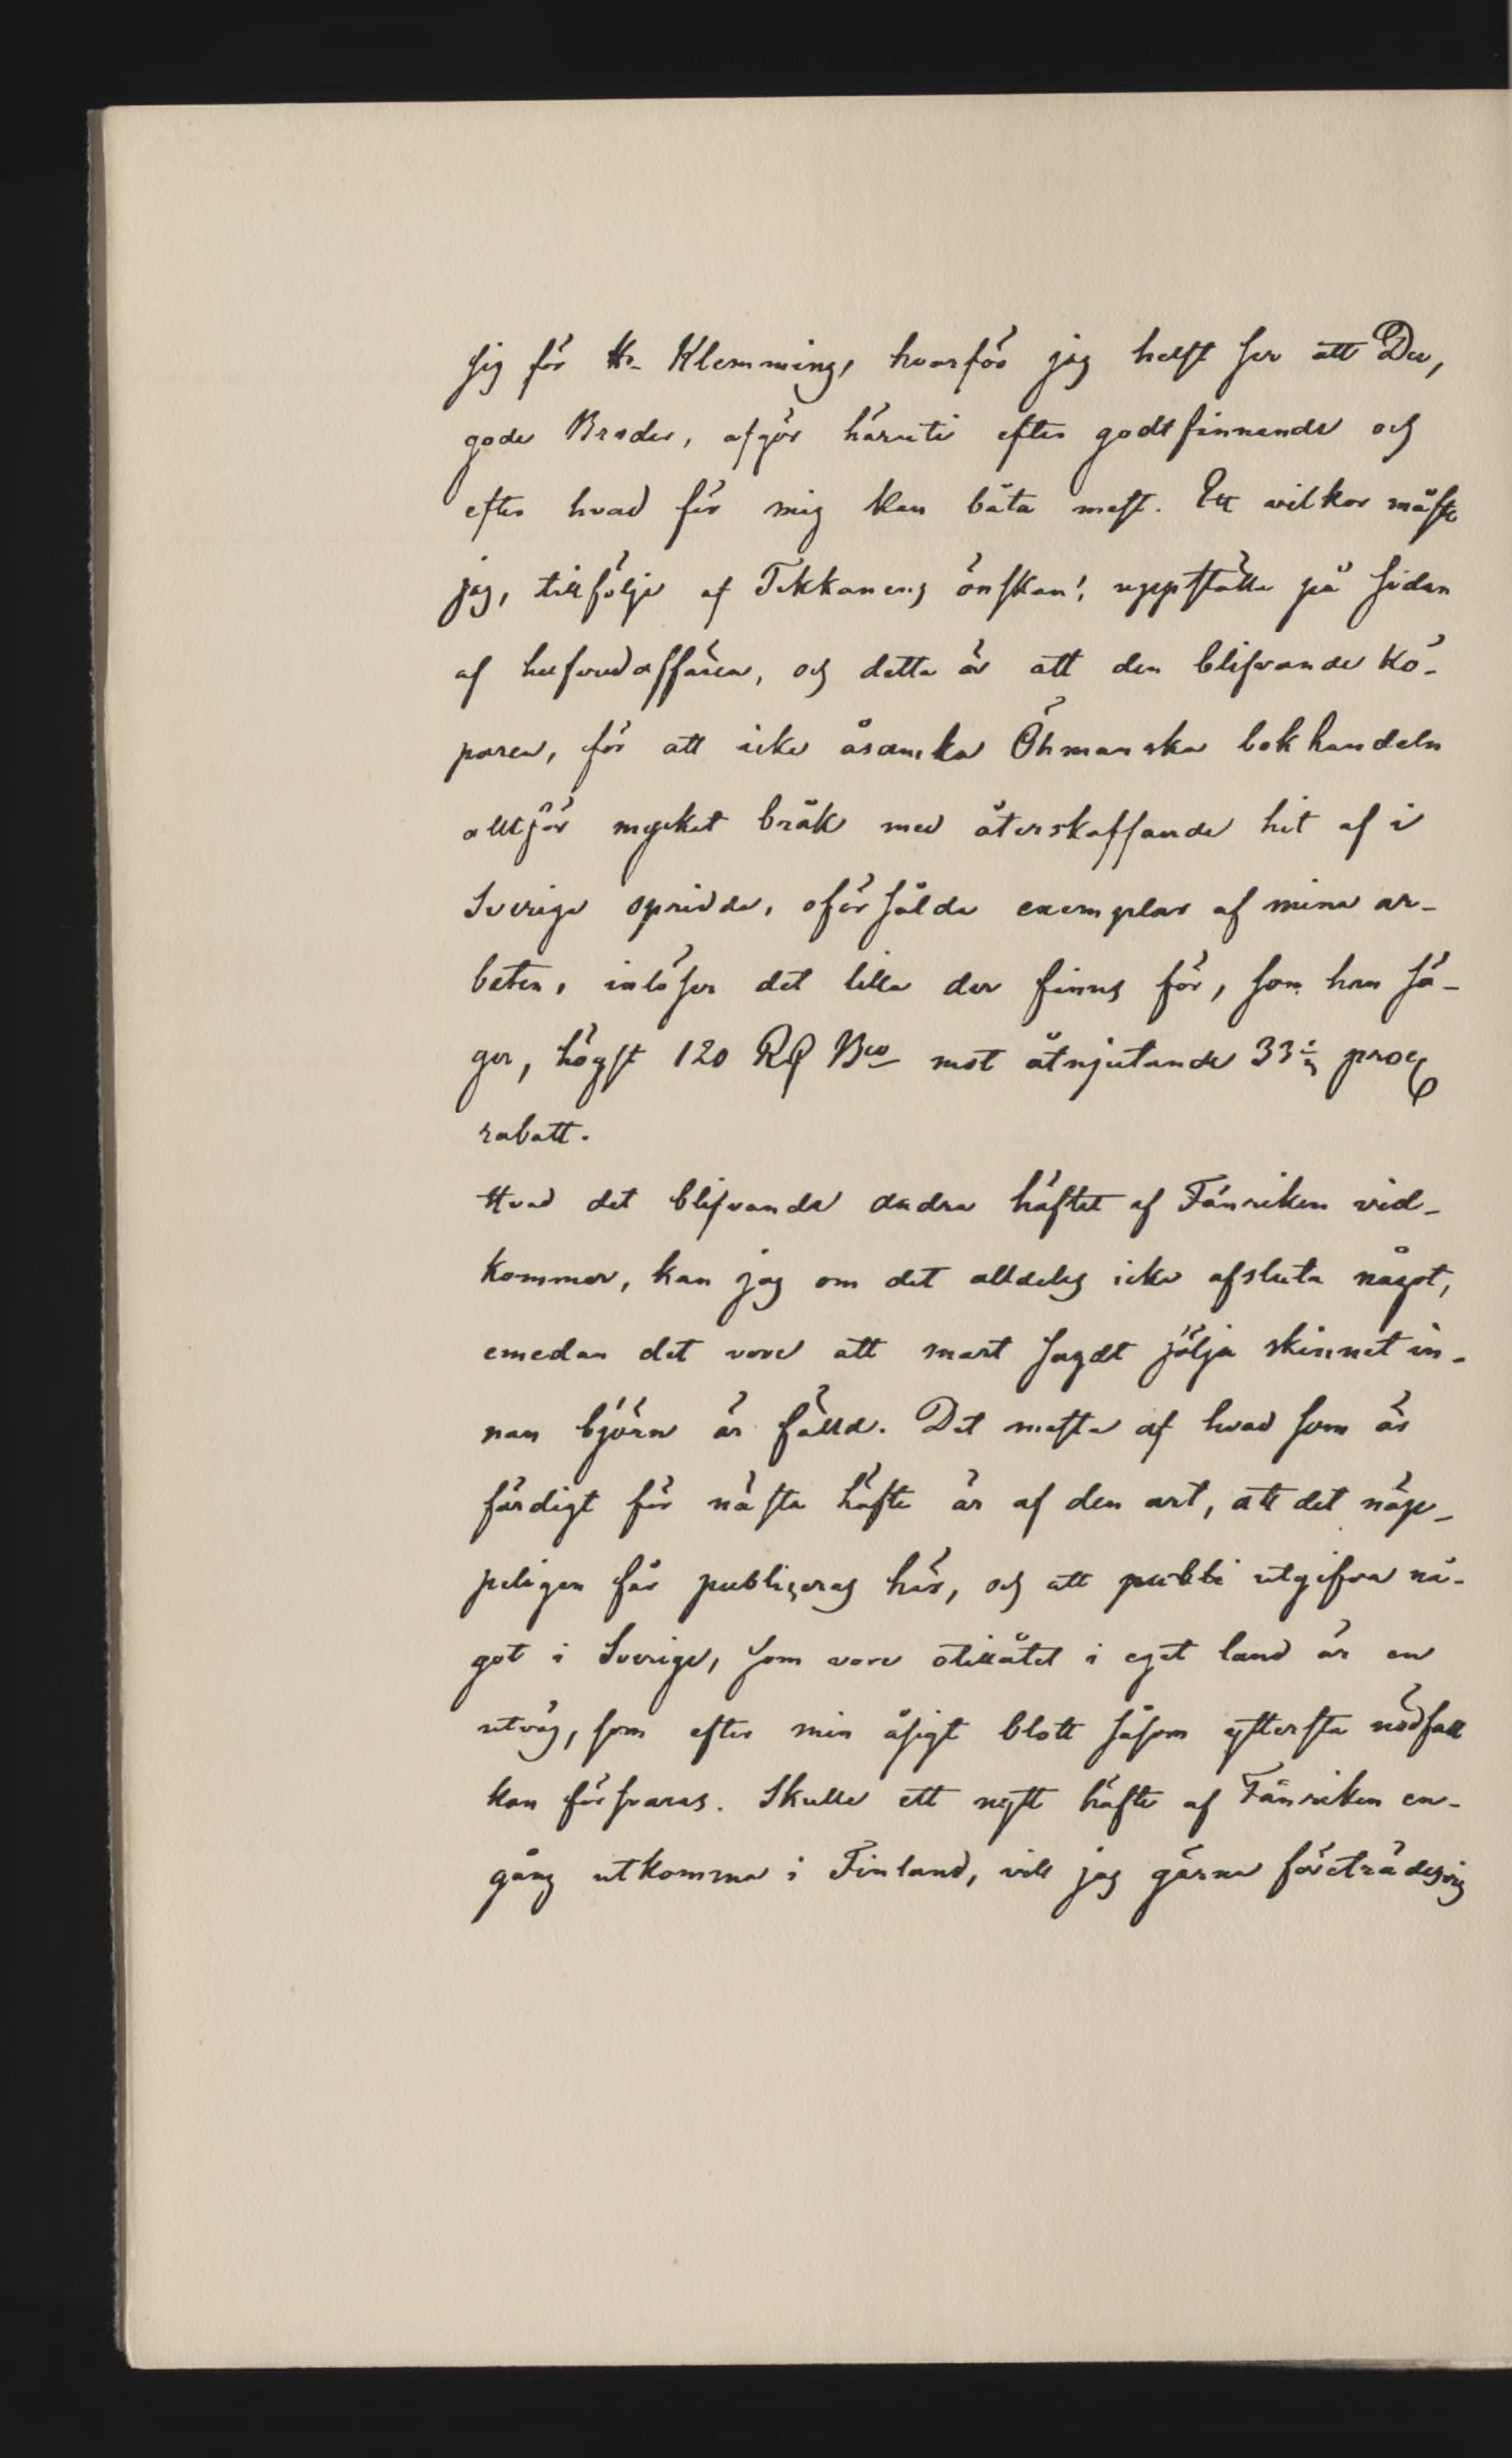 sig för Hr Klemming, hvarför jag helst ser att Du,
gode Broder, afgör häruti efter godtfinnande och
efter hvad för mig kan båta mest. Ett vilkor måste
jag, till följe af Tikkanens önskan, uppställa på sidan
af hufvudaffären, och detta är att den blifvande kö-
paren, för att icke åsamka Öhmanska bokhandeln
alltför mycket bråk med återskaffande hit af i
Sverige spridda, oförsålda exemplar af mina ar-
beten, inlöser det lilla der finns för, som han sä-
ger, högst 120 RD Bco mot åtnjutande 33⅓ proc
rabatt.
Hvad det blifvande andra häftet af Fänriken vid-
kommer, kan jag om det alldeles icke afsluta något,
emedan det vore att snart sagdt sälja skinnet in-
nan björn är fälld. Det mesta af hvad som är
färdigt för nästa häfte är af den art, att det näp-
peligen får publiceras här, och att publi utgifva nå-
got i Sverige, som vore otillåtet i eget land är en
utväg, som efter min åsigt blott såsom yttersta nödfall
kan försvaras. Skulle ett nytt häfte af Fänriken en-
gång utkomma i Finland, vill jag gärna företrädesvis